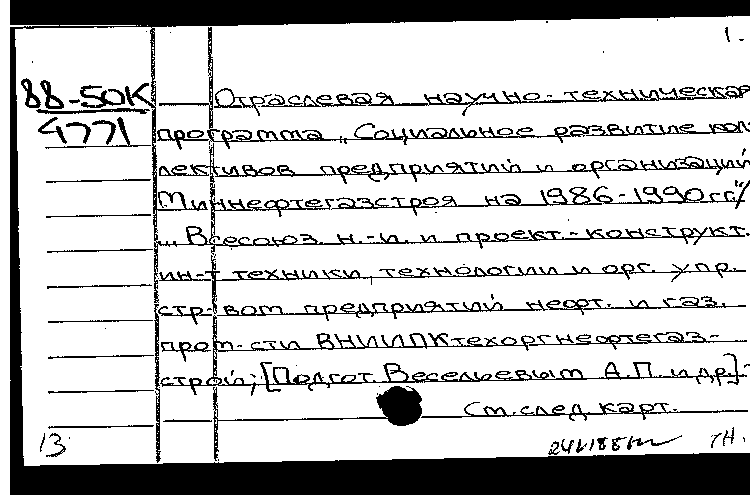 1.
88-50К
4771
Отраслевая научно-техническая
программа „Социальное развитие кол-
лективов предприятий и организаций
Миннефтегазстроя на 1986-1990 гг."/
... Всесоюз. н.-и. и проект.-конструкт.
ин-т техники, технологии и орг. упр.
стр-вом предприятий нефт. и газ.
пром-сти ВНИИПКтехоргнефтегаз-
строй; [Подгот. Весельевым А.П. и др.].-
См. след. карт.
13
ТН.